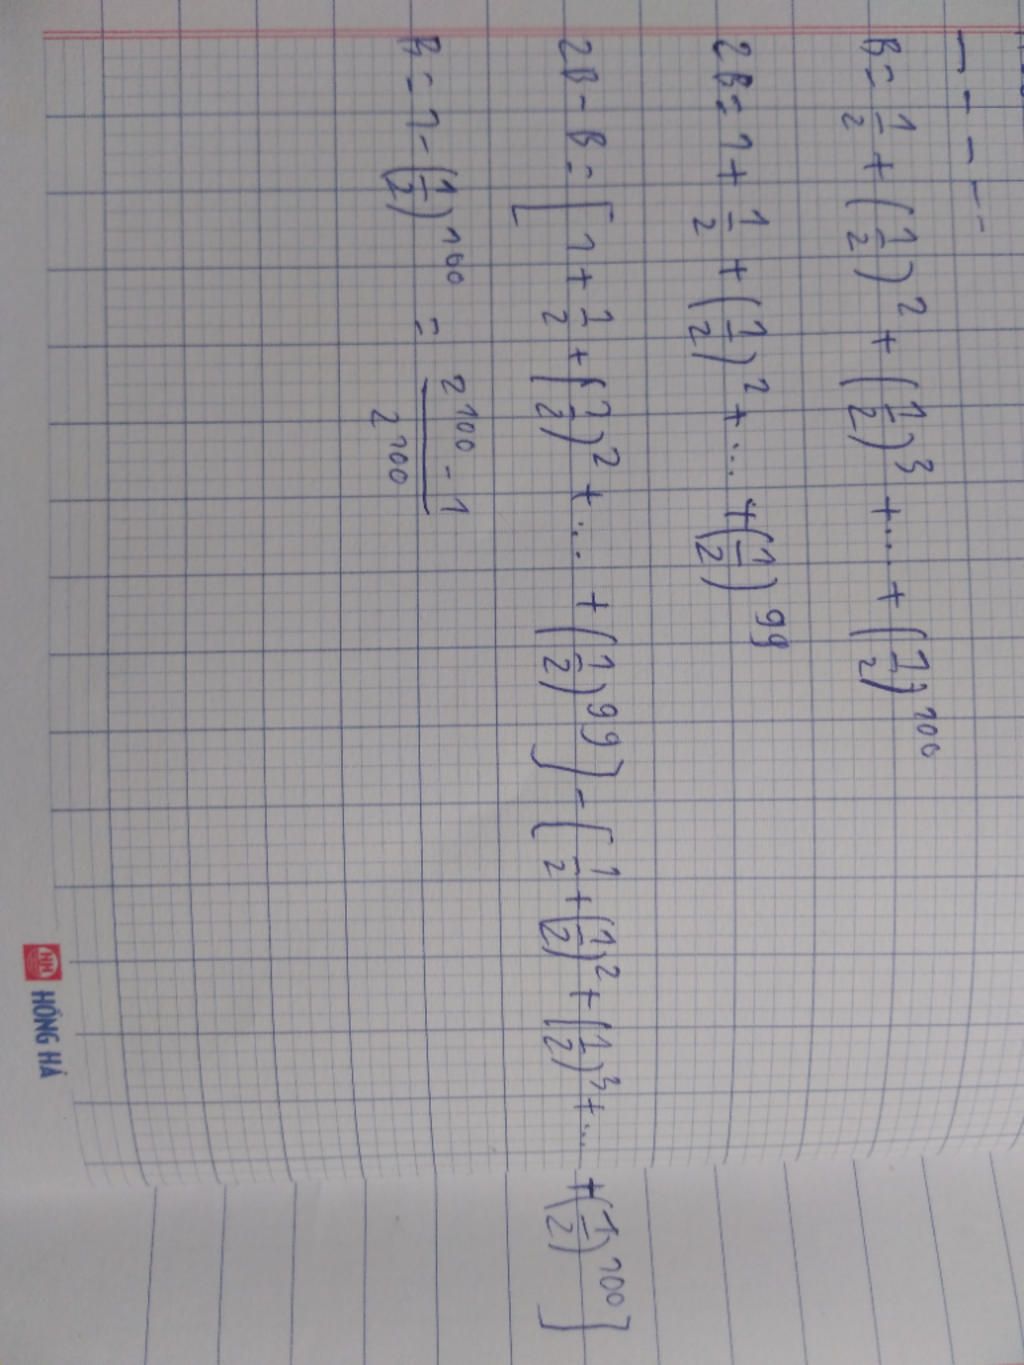 B = 1/2 + (1/2)^2 + (1/2)^3 + ... + (1/2)^100
2B = 1 + 1/2 + (1/2)^2 + ... + (1/2)^99
2B - B = [1 + 1/2 + (1/2)^2 + ... + (1/2)^99] - [1/2 + (1/2)^2 + (1/2)^3 + ... + (1/2)^100]
B = 1 - (1/2)^100 = (2^100 - 1)/2^100
HỒNG HÀ